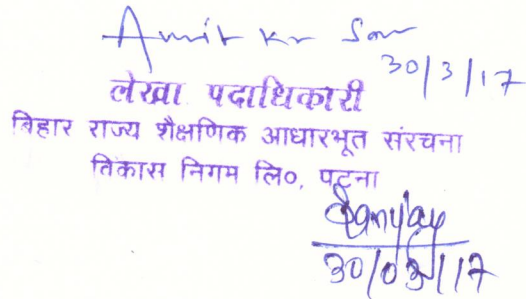 Amit Kr
30/3/17
लेखा पदाधिकारी
बिहार राज्य शैक्षणिक आधारभूत संरचना
विकास निगम लि०, पटना
Sanjay
30/03/17